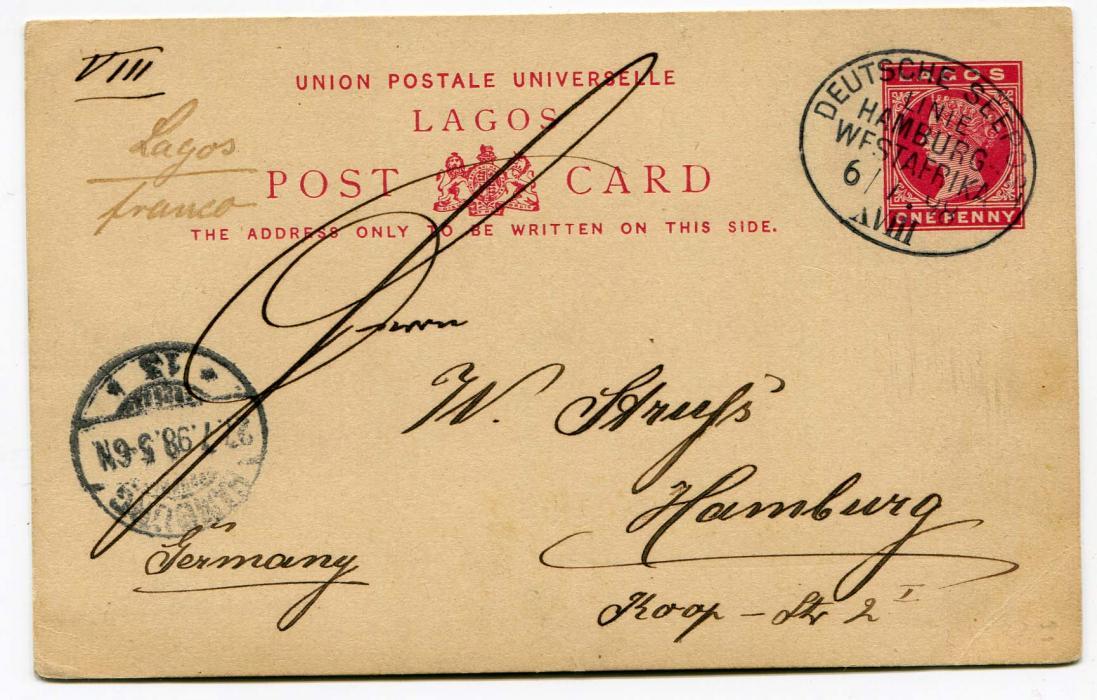 VIII
Lagos
franco
UNION POSTALE UNIVERSELLE
LAGOS
POST CARD
THE ADDRESS ONLY TO BE WRITTEN ON THIS SIDE.
LAGOS
ONE PENNY
DEUTSCHE SEEPOST
LINIE
HAMBURG
WESTAFRIKA
6/7 98
XVIII
Herrn
W. Struß
Hamburg
Koop-Str 2 I
Germany
* 13 *
.7.98.5-6N
HAMBURG